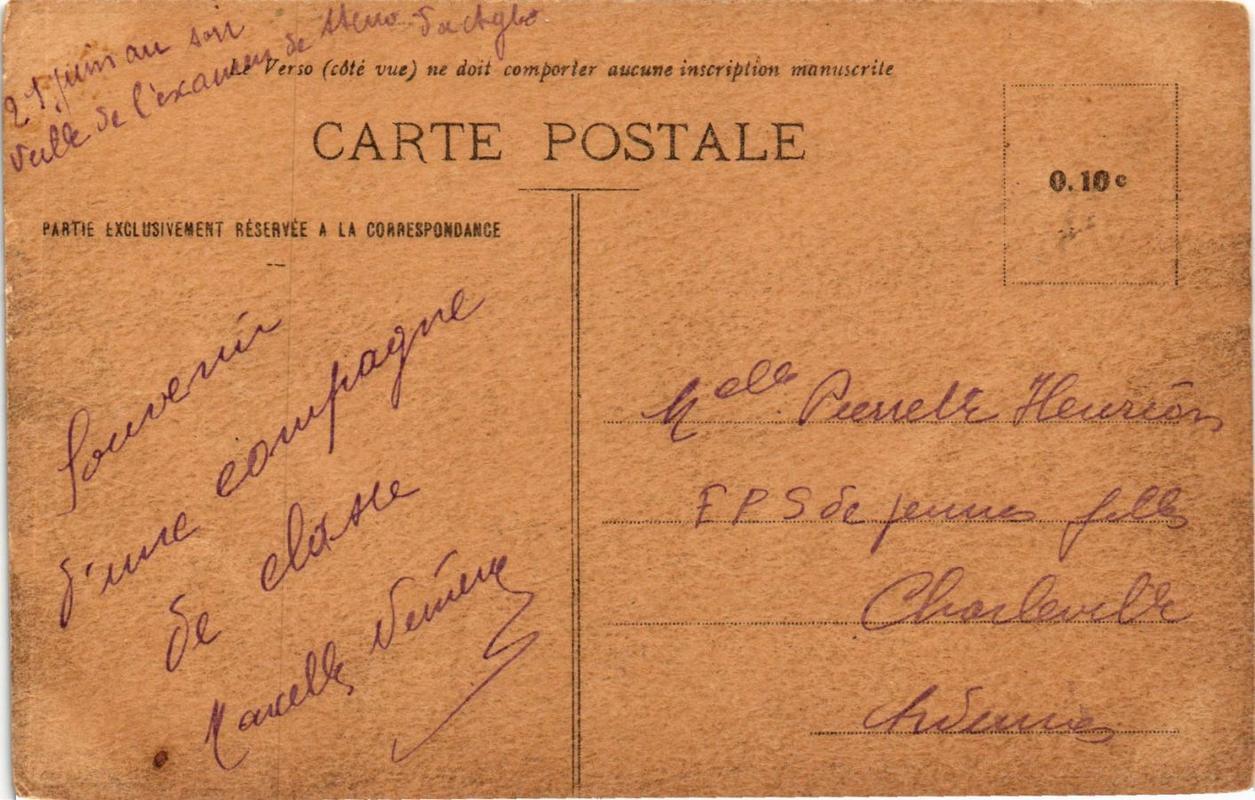 21 juin au soir
veille de l'examen de steno dactylo
Le Verso (côté vue) ne doit comporter aucune inscription manuscrite
CARTE POSTALE
0.10c
PARTIE EXCLUSIVEMENT RÉSERVÉE A LA CORRESPONDANCE
Souvenir
d'une compagne
de classe
Marcelle
Melle Pierrette Henrion
E P S de jeunes filles
Charleville
Ardennes